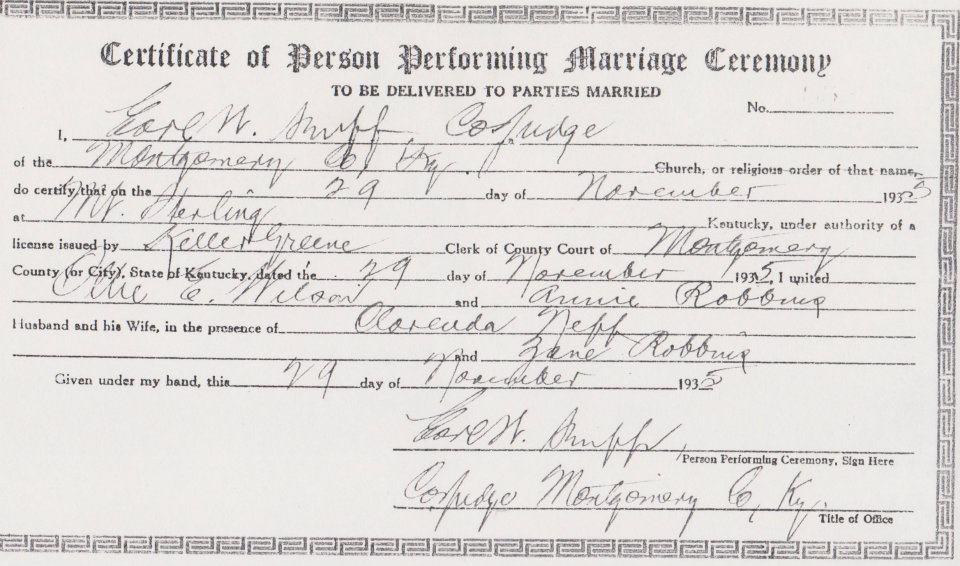 Certificate of Person Performing Marriage Ceremony
TO BE DELIVERED TO PARTIES MARRIED
No.
I, Earl W. Co Judge
of the Montgomery Co, Ky. Church, or religious order of that name,
do certify that on the 29 day of November 1935
at Mt. Sterling Kentucky, under authority of a
license issued by Keller Greene Clerk of County Court of Montgomery
County (or City), State of Kentucky, dated the 29 day of November 1935, I united
Ollie E. Wilson and Annie Robbins
Husband and his Wife, in the presence of Clorenda Neff
and Zane Robbins
Given under my hand, this 29 day of November 1935
Earl W.
Person Performing Ceremony, Sign Here
Co Judge Montgomery Co, Ky.
Title of Office